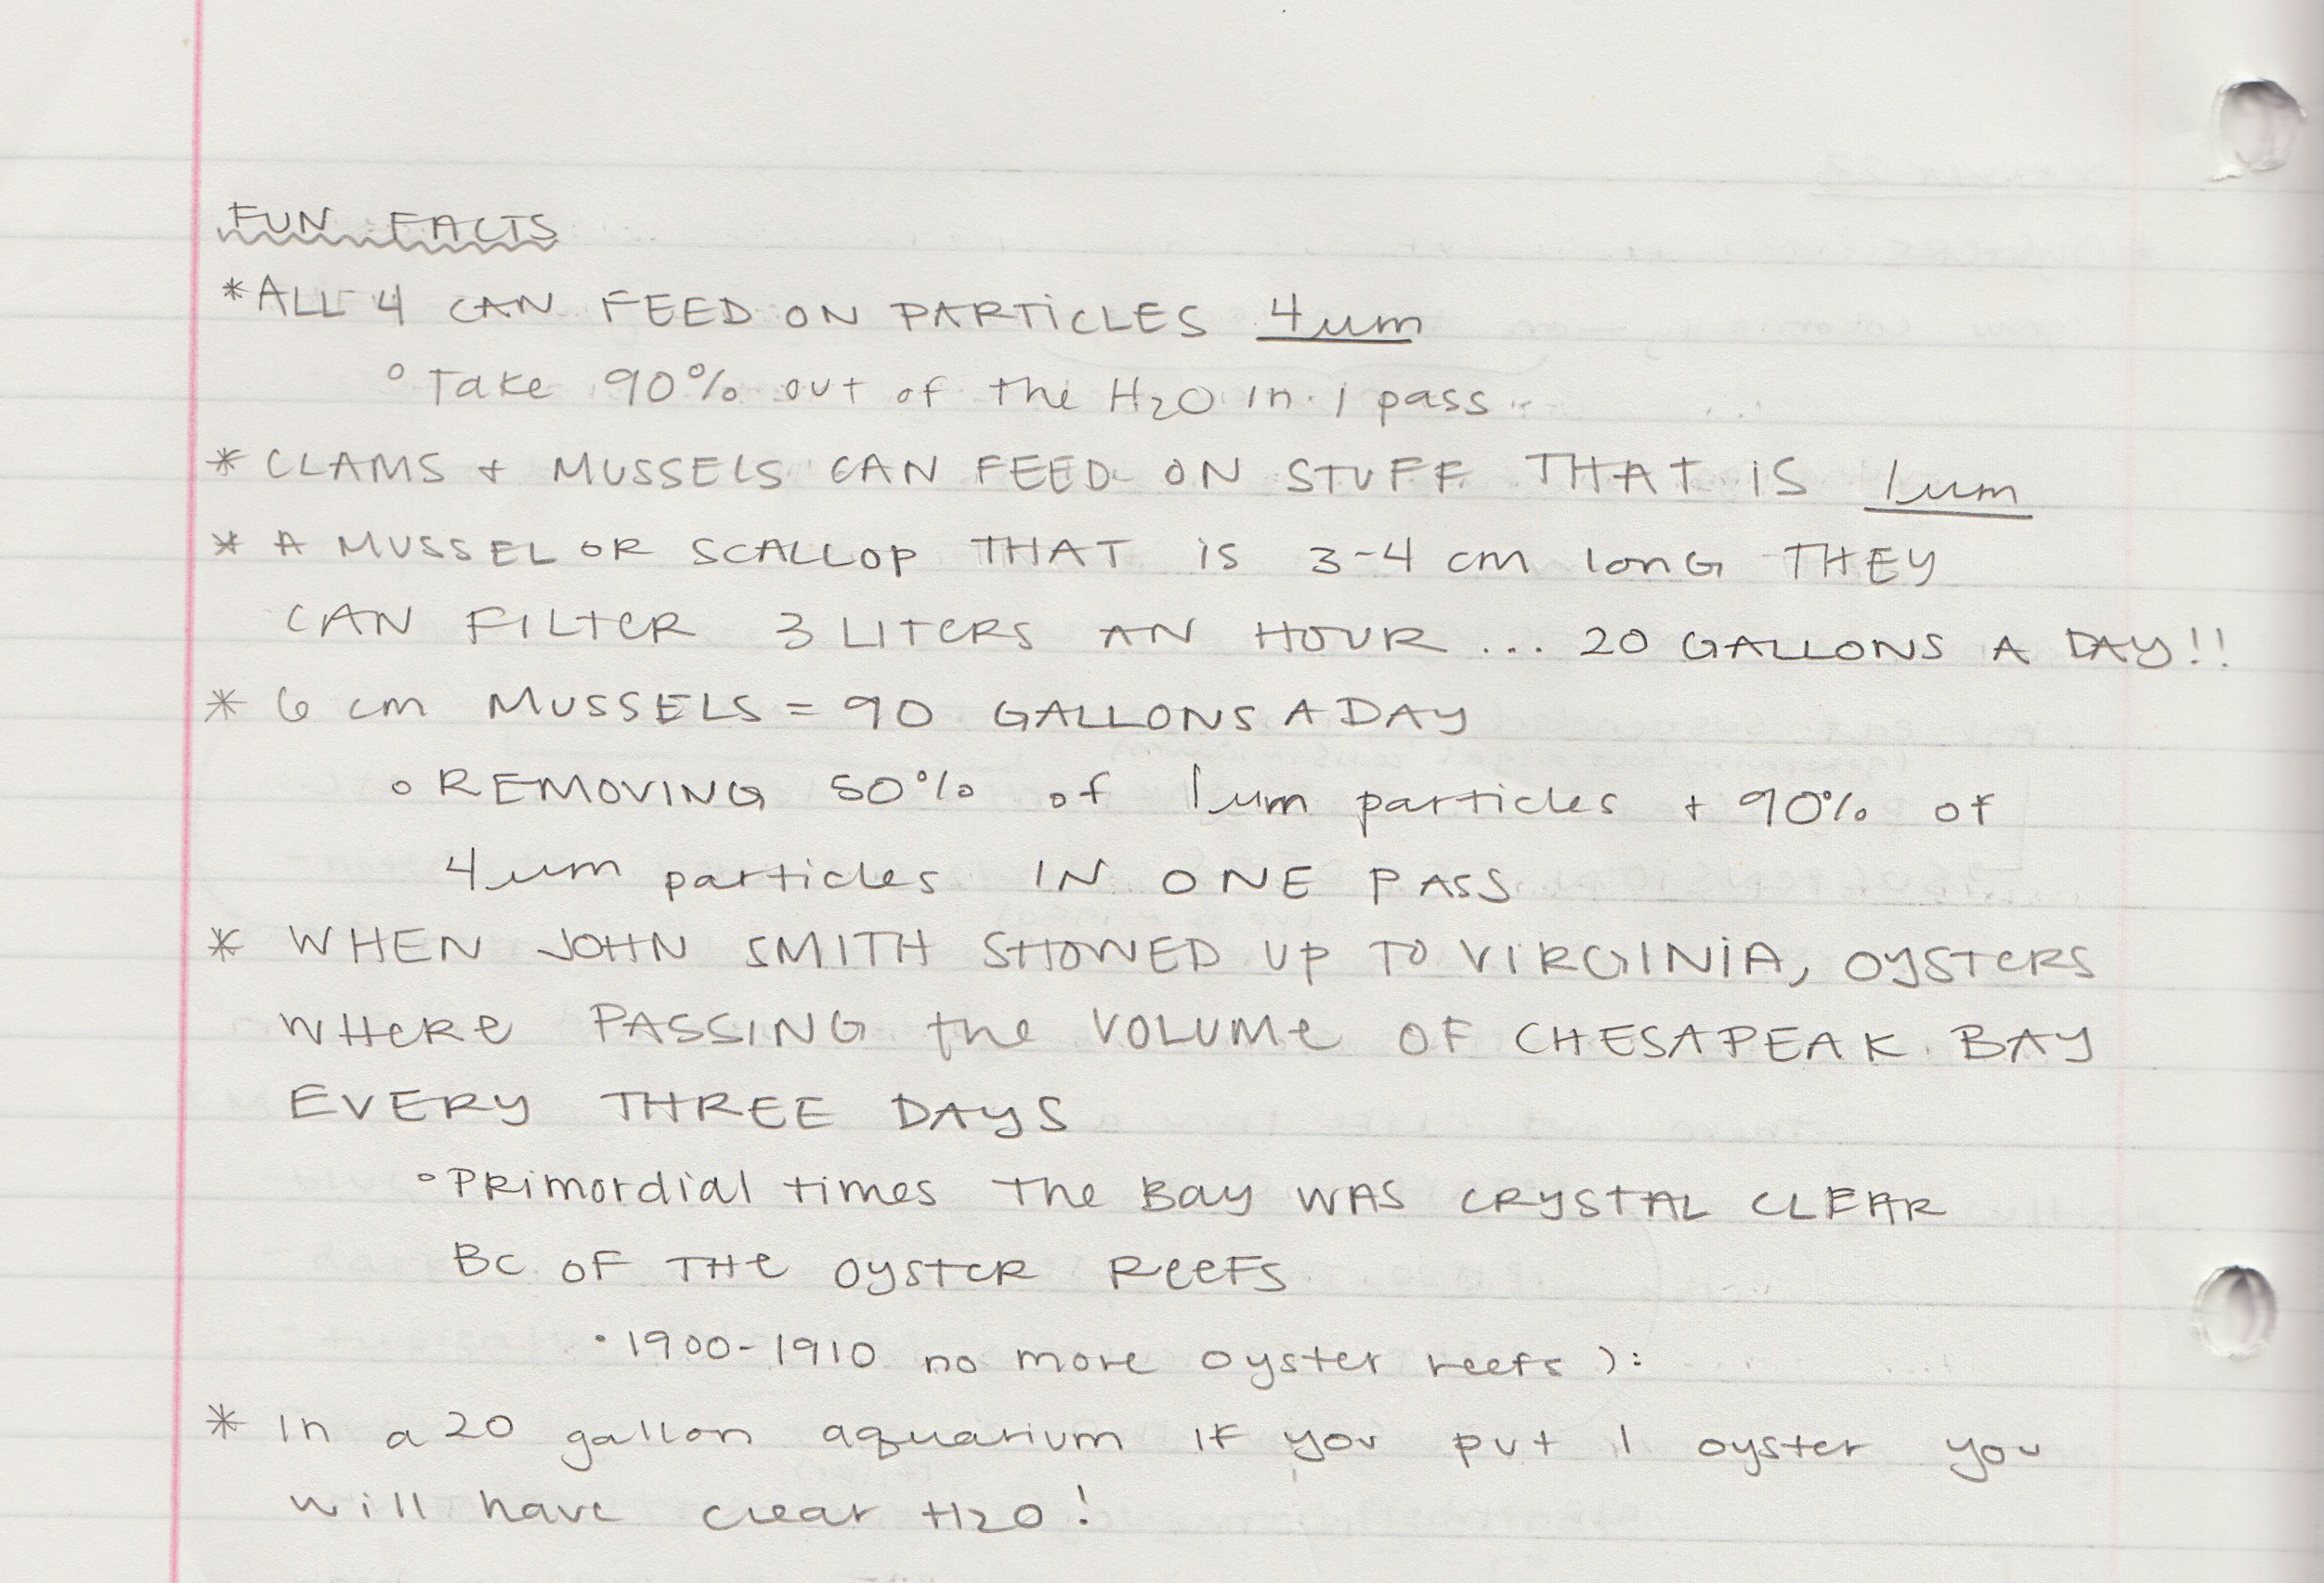 FUN FACTS
*ALL 4 CAN FEED ON PARTICLES 4um
° Take 90% out of the H2O in 1 pass
* CLAMS + MUSSELS CAN FEED ON STUFF THAT IS 1um
* A MUSSEL OR SCALLOP THAT IS 3-4 cm lonG THEY
CAN FILTeR 3 LITeRS AN HOUR ... 20 GALLONS A DAY!!
* 6 cm MUSSELS = 90 GALLONS A DAY
° REMOVING 50% of 1um particles + 90% of
4um particles IN ONE PASS
* WHEN JOHN SMITH SHOWED UP TO VIRGINIA, OYSTeRS
WHeRe PASSING the VOLUMe OF CHESAPEAK BAY
EVERY THREE DAYS
° PRimordial times The Bay WAS CRYSTAL CLEAR
BC OF THe OYSTeR ReeFS
° 1900-1910 no more oyster reefs ):
* In a 20 gallon aquarium if you put 1 oyster you
will have clear H2O!